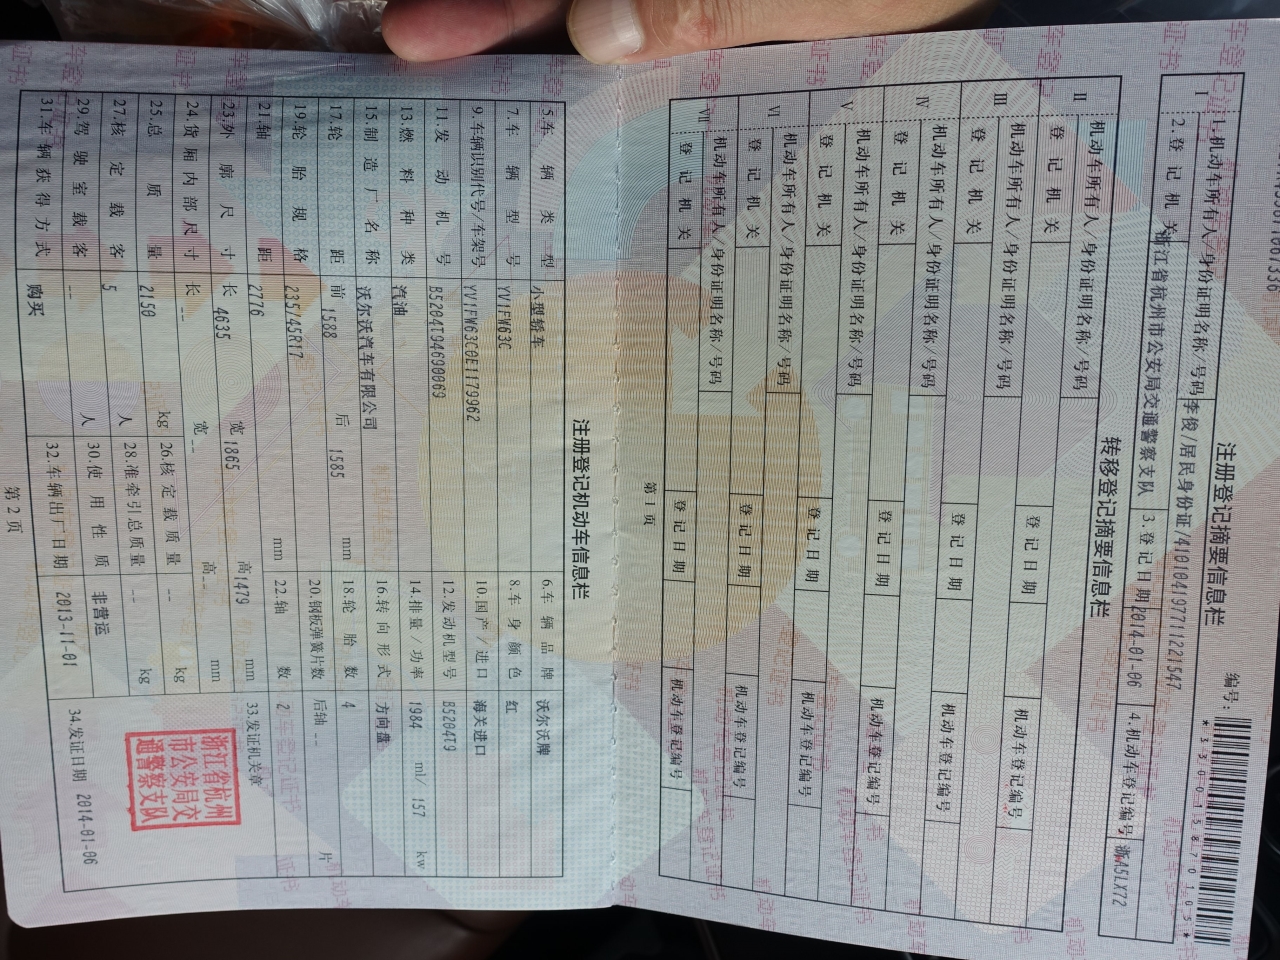 注册登记摘要信息栏
编号:
*330015870105*
Ⅰ
1.机动车所有人/身份证明名称/号码 李俊/居民身份证/410104197711221547
2.登记机关 浙江省杭州市公安局交通警察支队 3.登记日期 2014-01-06 4.机动车登记编号 浙A5LX72
转移登记摘要信息栏
Ⅱ
机动车所有人/身份证明名称/号码
登记机关 登记日期 机动车登记编号
Ⅲ
机动车所有人/身份证明名称/号码
登记机关 登记日期 机动车登记编号
Ⅳ
机动车所有人/身份证明名称/号码
登记机关 登记日期 机动车登记编号
Ⅴ
机动车所有人/身份证明名称/号码
登记机关 登记日期 机动车登记编号
Ⅵ
机动车所有人/身份证明名称/号码
登记机关 登记日期 机动车登记编号
Ⅶ
机动车所有人/身份证明名称/号码
登记机关 登记日期 机动车登记编号
第1页
注册登记机动车信息栏
5.车辆类型 小型轿车 6.车辆品牌 沃尔沃牌
7.车辆型号 YV1FW63C 8.车身颜色 红
9.车辆识别代号/车架号 YV1FW63C0E1179962 10.国产/进口 海关进口
11.发动机号 B5204T94690069 12.发动机型号 B5204T9
13.燃料种类 汽油 14.排量/功率 1984 ml/ 157 kw
15.制造厂名称 沃尔沃汽车有限公司 16.转向形式 方向盘
17.轮距 前 1588 后 1585 mm 18.轮胎数 4
19.轮胎规格 235/45R17 20.钢板弹簧片数 后轴 -- 片
21.轴距 2776 mm 22.轴数 2
23.外廓尺寸 长 4635 宽 1865 高 1479 mm 33.发证机关章
24.货厢内部尺寸 长 -- 宽 -- 高 -- mm
25.总质量 2150 kg 26.核定载质量 -- kg
27.核定载客 5 人 28.准牵引总质量 -- kg
29.驾驶室载客 -- 人 30.使用性质 非营运
31.车辆获得方式 购买 32.车辆出厂日期 2013-11-01 34.发证日期 2014-01-06
浙江省杭州
市公安局交
通警察支队
第2页